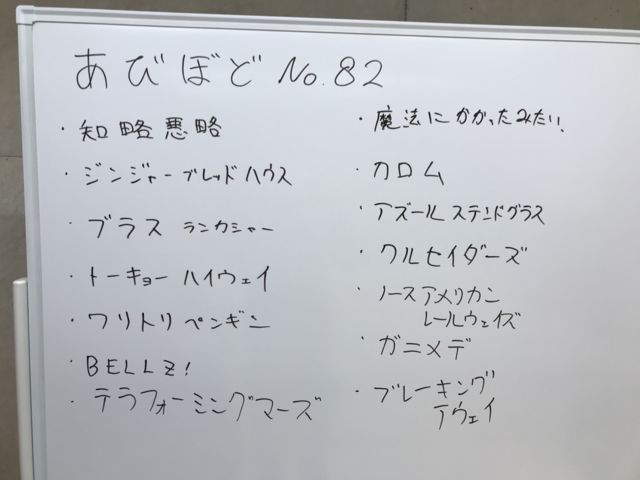 あびぼど No.82
・知略悪略
・ジンジャーブレッドハウス
・ブラス ランカシャー
・トーキョーハイウェイ
・ワリトリペンギン
・BELLZ!
・テラフォーミングマーズ
・魔法にかかったみたい、
・カロム
・アズールステンドグラス
・クルセイダーズ
・ノースアメリカン
レールウェイズ
・ガニメデ
・ブレーキング
アウェイ